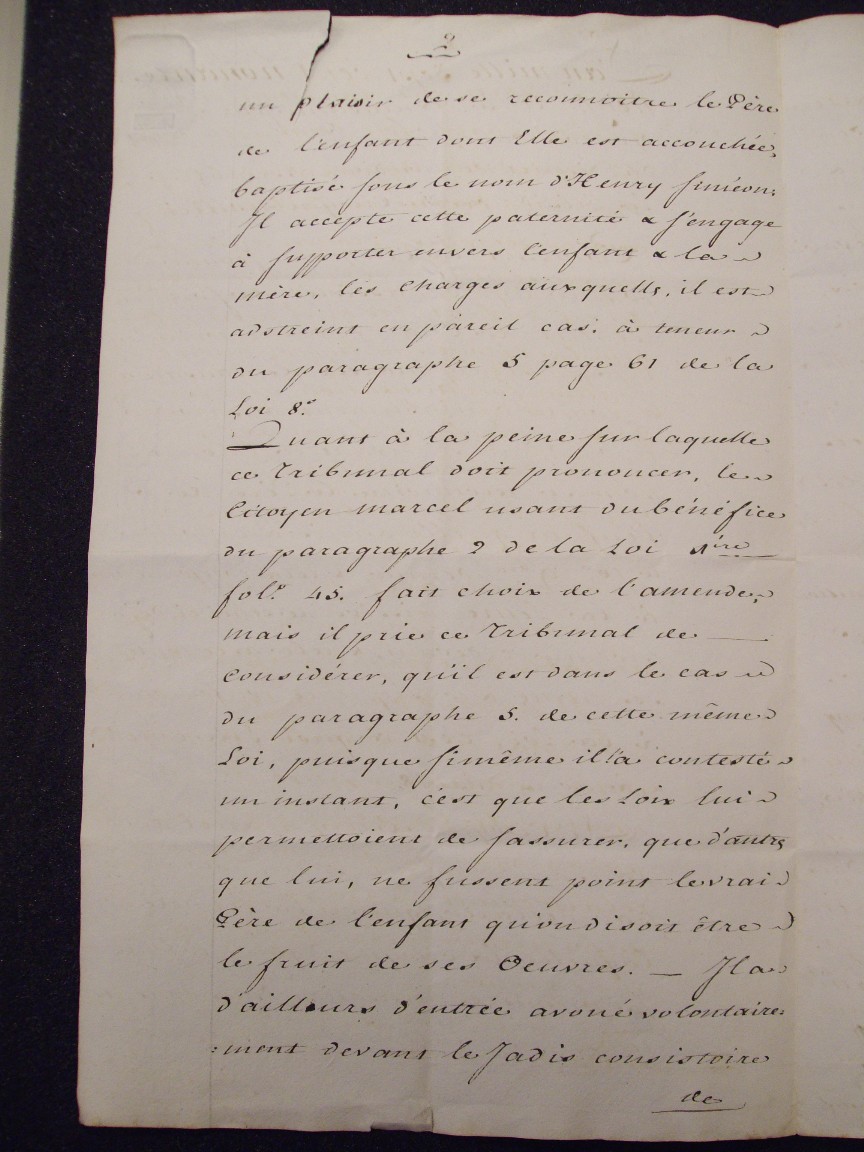 2
un plaisir de se reconnoitre le Père
de l'enfant dont Elle est accouchée,
baptisé sous le nom d'Henry siméon;
Il accepte cette paternité & s'engage
à supporter envers l'enfant & la
mère, les charges auxquelles, il est
adstreint en pareil cas, à teneur
du paragraphe 5 page 61 de la
Loi 8e.
Quant à la peine sur laquelle
ce Tribunal doit prononcer, le
Citoyen marcel usant du bénéfice
du paragraphe 2 de la Loi 1ère
folo. 45. fait choix de l'amende,
mais il prie ce Tribunal de
considérer, qu'il est dans le cas
du paragraphe 5. de cette même
Loi, puisque si même il l'a contesté
un instant, c'est que les Loix lui
permettoient de s'assurer, que d'autres
que lui, ne fussent point le vrai
Père de l'enfant qu'on disoit être
le fruit de ses Oeuvres. — Il a
d'ailleurs d'entrée avoué volontaire:
:ment devant le Jadis consistoire
de